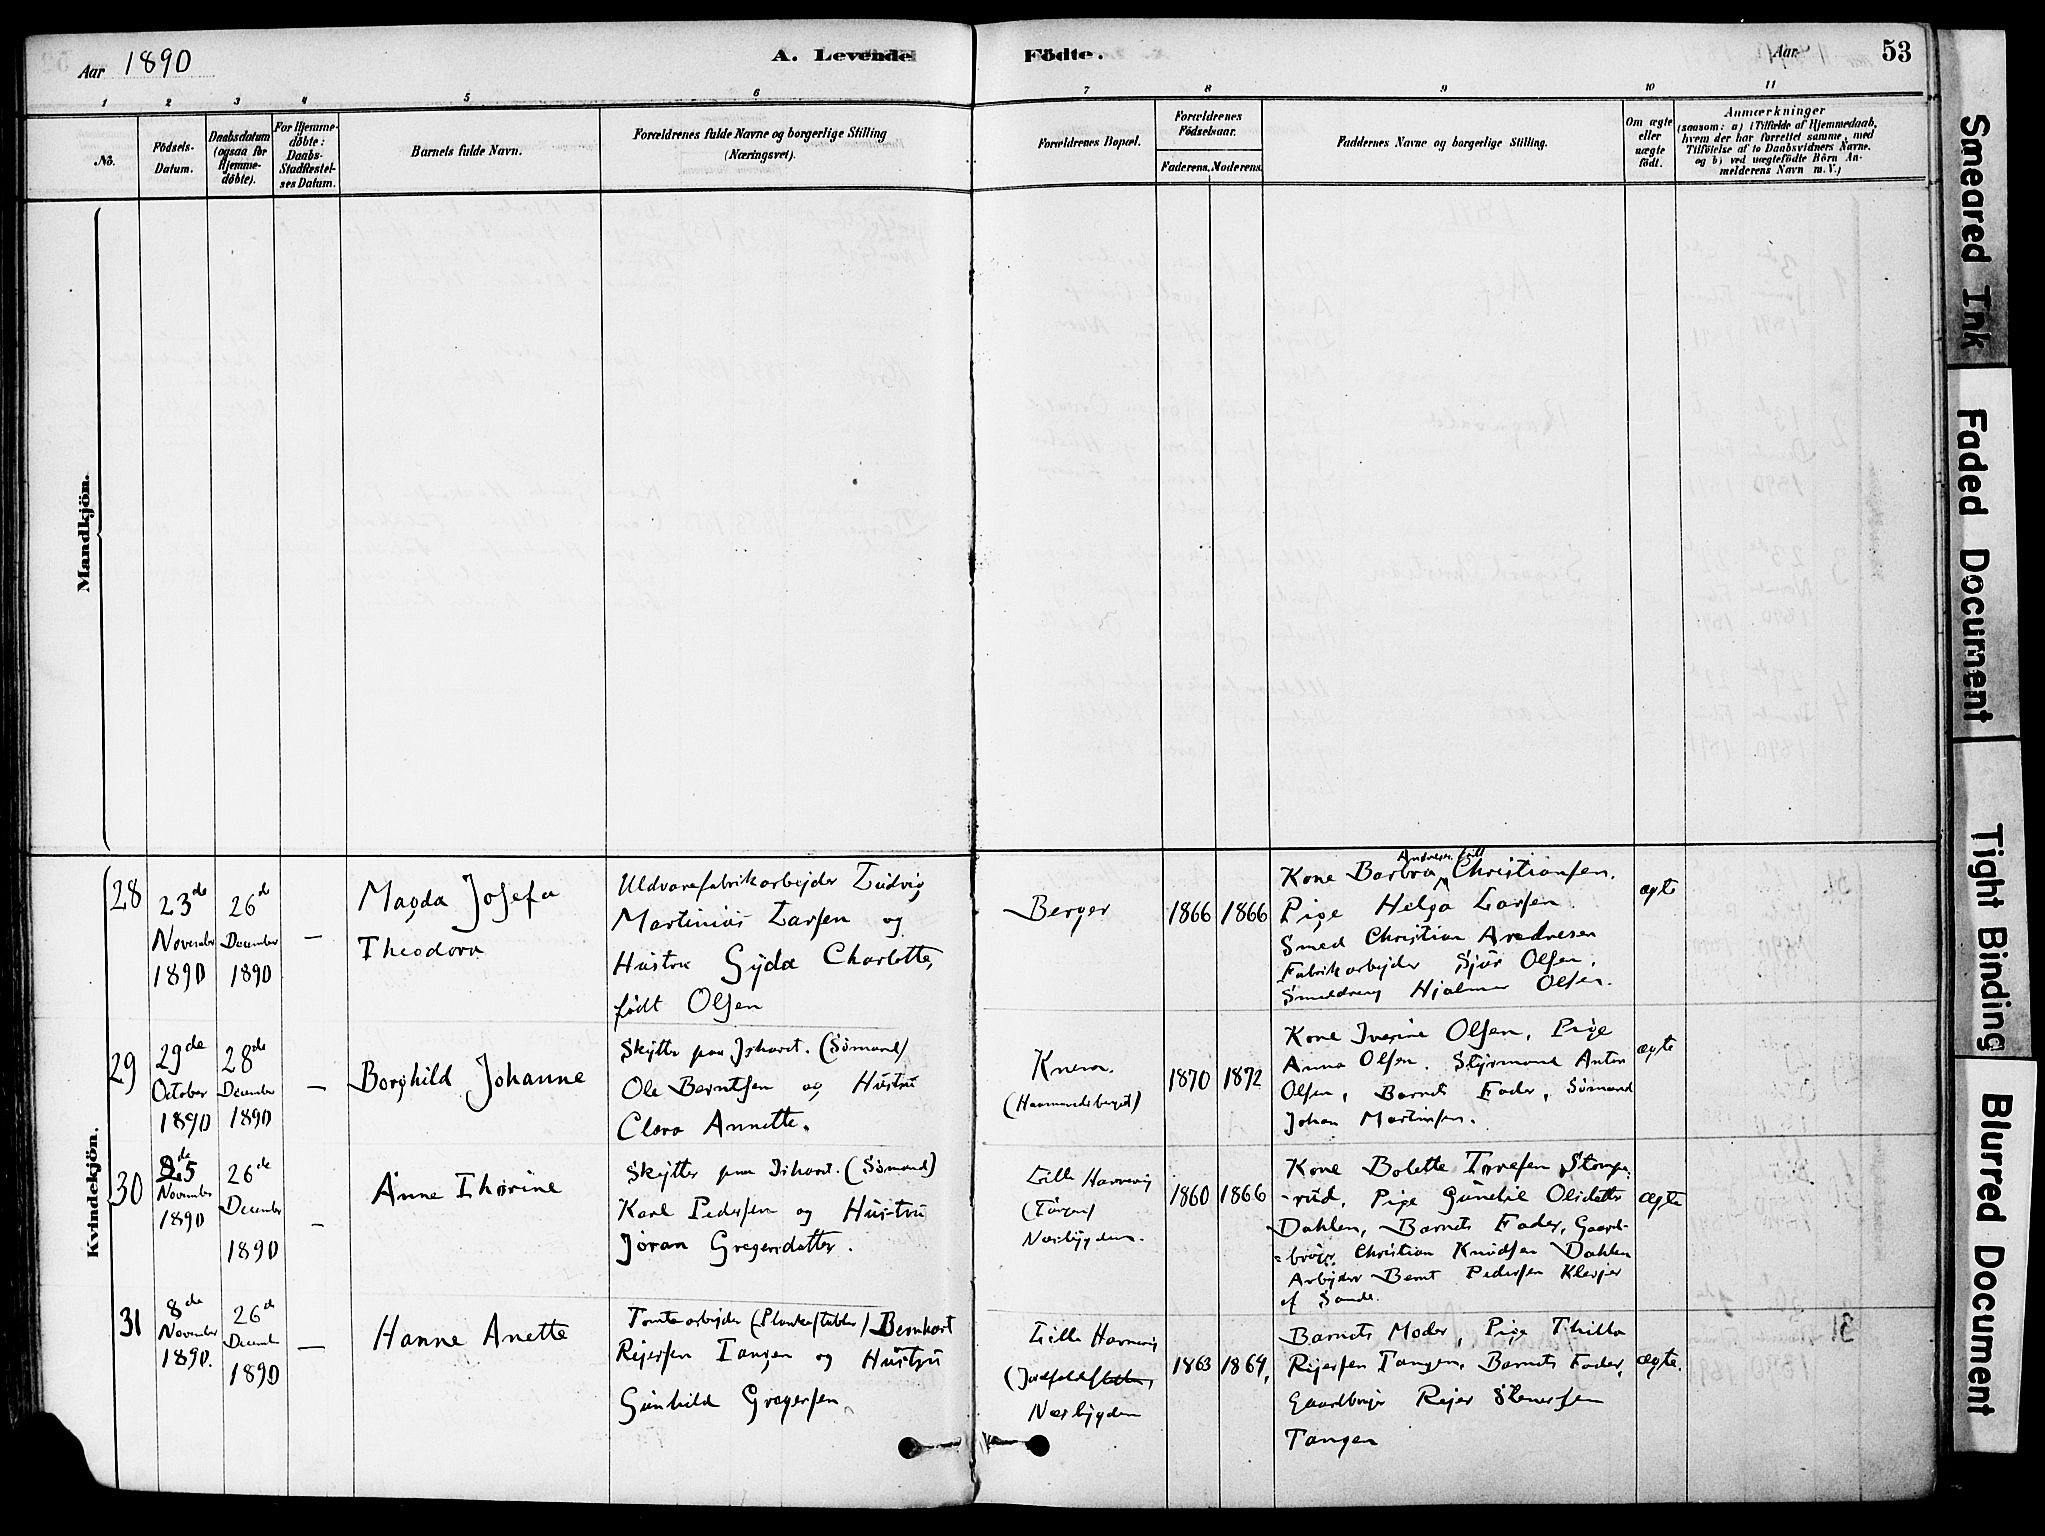 Aar 1890
A. Levende Födte.
Aar
53
1 2 3 4 5 6 7 8 9 10 11
No.
Födsels-
Datum.
Daabsdatum
(ogsaa for
Hjemme-
døbte).
For Hjemme-
døbte:
Daabs-
Stadfæstel-
ses Datum.
Barnets fulde Navn.
Forældrenes fulde Navne og borgerlige Stilling
(Næringsvei).
Forældrenes Bopæl.
Forældrenes
Födselsaar.
Faderens. Moderens.
Faddernes Navne og borgerlige Stilling.
Om ægte
eller
uægte
födt.
Anmærkninger
(saasom: a) i Tilfælde af Hjemmedaab,
hvem der har forrettet samme, med
Tilföielse af to Daabsvidners Navne.
og b) ved uægtefödte Börn An-
melderens Navn m. V.)
Mandkjön.
Kvindekjön.
28
23de
November
1890
26de
December
1890
—
Magda Josefa
Theodora
Uldvarefabrikarbejder Ludvig
Martinius Larsen og
Hustru Gyda Charlotte,
født Olsen
Berger
1866
1866
Kone Barbra Christiansen.
Pige Helga Larsen
Smed Christian Andresen
Fabrikarbejder Sjur Olsen,
Smeddreng Hjalmar Olsen.
ægte
29
29de
October
1890
28de
December
1890
—
Borghild Johanne
Skytter paa Ishavet. (Sømand)
Ole Berntsen og Hustru
Clara Annette.
Knem.
(Havmandsberget)
1870
1872
Kone Iverine Olsen, Pige
Anna Olsen. Styrmand Anton
Olsen, Barnets Fader, Sømand
Johan Martinsen.
ægte
30
25de
November
1890
26de
December
1890
—
Anne Thorine
Skytter paa Ishavet. (Sømand)
Karl Pedersen og Hustru
Jøran Gregersdatter.
Lille Havnevig
(Tangen)
Nesbygden.
1860
1866
Kone Bolette Tovesen Stompe-
-rud, Pige Gunhil Olsdatter
Dahlen, Barnets Fader, Gaard-
-brüger Christian Knudsen Dahlen
Arbejder Bernt Pedersen Klevjer
af Sande.
ægte
31
8de
November
1890.
26de
December
1890
—
Hanne Anette
Tomtearbejder (Plankestabler) Bernhart
Rejersen Tangen og Hustru
Gunhild Gregersen
Lille Havnevig
Nesbygden
1863
1864,
Barnets Moder, Pige Thilla
Rejersen Tangen, Barnets Fader,
Gaardbruger Rejer Stenersen
Tangen
ægte.
Smeared Ink
Faded Document
Tight Binding
Blurred Document